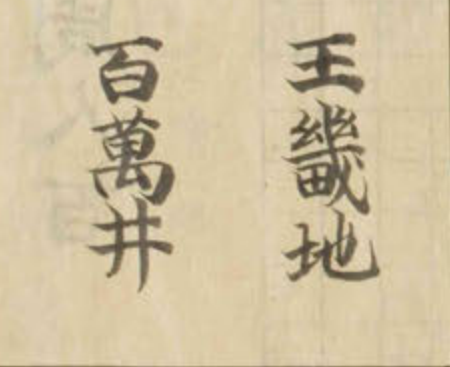 王畿地
百萬井